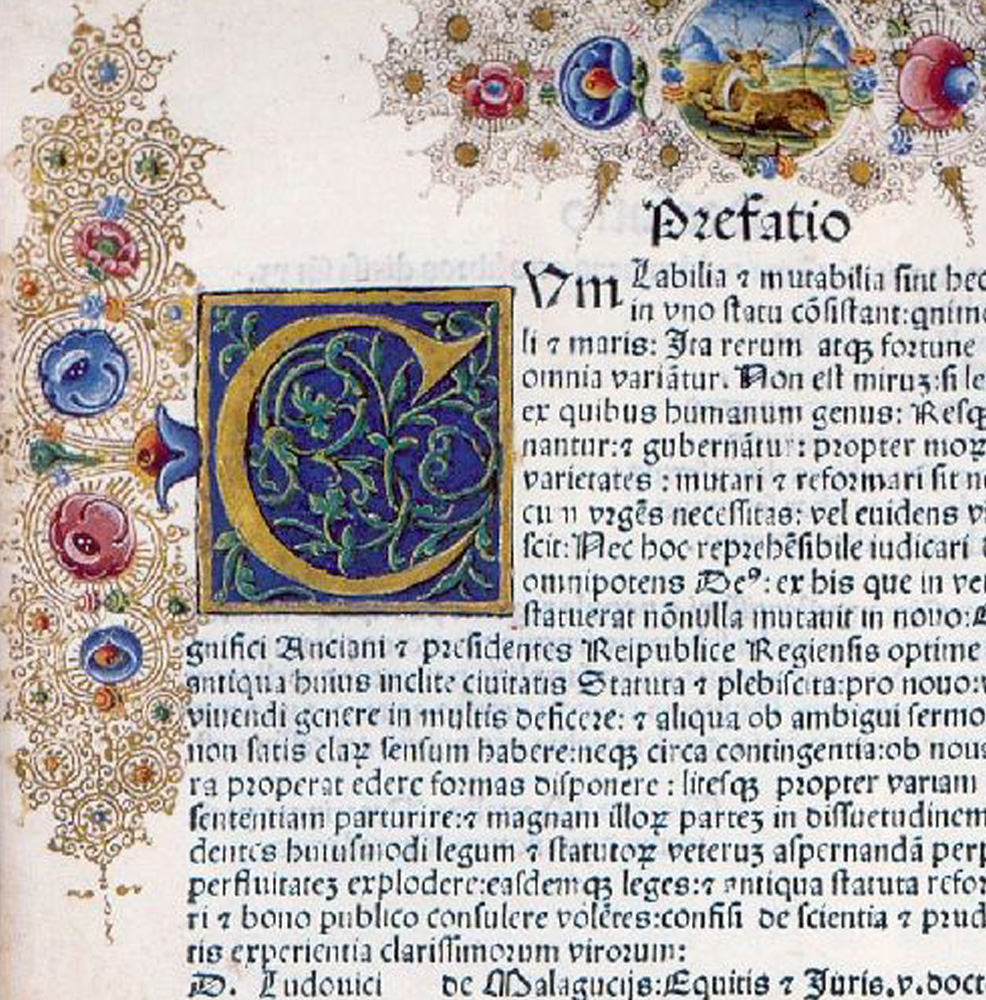 Prefatio
C Vm Labilia ⁊ mutabilia sint hec
in vno statu cõsistant:qnim
li ⁊ maris: Ita rerum atqꝫ fortune
omnia variãtur. Non est miruꝫ:si le
ex quibus humanum genus: Resq
nantur:⁊ gubernãtur: propter moꝝ
varietates : mutari ⁊ reformari sit ne
cũ vrgẽs necessitas: vel euidens v
scit: Nec hoc reprehẽsibile iudicari
omnipotens Deꝰ: ex his que in vet
statuerat nõnulla mutauit in nouo:
gnifici Anciani ⁊ presidentes Reipublice Regiensis optime
antiqua huius inclite ciuitatis Statuta ⁊ plebiscita:pro nouo:
viuendi genere in multis deficere: ⁊ aliqua ob ambigui sermo
non satis claꝝ sensum habere:neqꝫ circa contingentia:ob noua
ra properat edere formas disponere : litesqꝫ propter variam
sententiam parturire:⁊ magnam illoꝝ parteꝫ in dissuetudinem
dentes huiusmodi legum ⁊ statutoꝝ veteruꝫ aspernandã perp
perfluitateꝫ explodere:easdemqꝫ leges:⁊ antiqua statuta refor
ri ⁊ bono publico consulere volẽtes:confisi de scientia ⁊ prud
tis experientia clarissimorum virorum:
D. Ludouici de Malagucijs:Equitis ⁊ Juris.v.doct